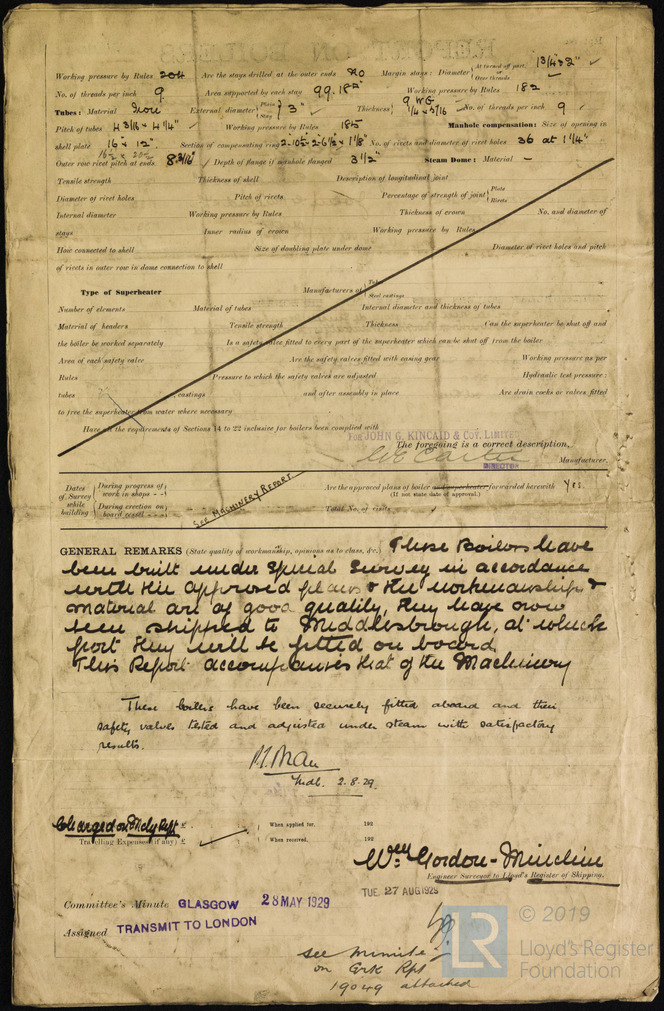 Working pressure by Rules 204 Are the stays drilled at the outer ends No Margin stays: Diameter { At turned off part, 1 3/4 & 2" Over threads
No. of threads per inch 9 Area supported by each stay Working pressure by Rules 182
Tubes: Material Iron External diameter { Plain Stay 3" Thickness { 9 WG 1/4 & 5/16 No. of threads per inch 9
Pitch of tubes 4 3/16 x 4 1/4" Working pressure by Rules 185 Manhole compensation: Size of opening in
shell plate 16 x 12" Section of compensating ring No. of rivets and diameter of rivet holes 36 at 1 1/4"
Outer row rivet pitch at ends 8 3/16" Depth of flange if manhole flanged 3 1/2" Steam Dome: Material –
Tensile strength Thickness of shell Description of longitudinal joint
Diameter of rivet holes Pitch of rivets Percentage of strength of joint { Plate Rivets
Internal diameter Working pressure by Rules Thickness of crown No. and diameter of
stays Inner radius of crown Working pressure by Rules
How connected to shell Size of doubling plate under dome Diameter of rivet holes and pitch
of rivets in outer row in dome connection to shell
Type of Superheater Manufacturers of { Tubes Steel castings
Number of elements Material of tubes Internal diameter and thickness of tubes
Material of headers Tensile strength Thickness Can the superheater be shut off and
the boiler be worked separately Is a safety valve fitted to every part of the superheater which can be shut off from the boiler
Area of each safety valve Are the safety valves fitted with easing gear Working pressure as per
Rules Pressure to which the safety valves are adjusted Hydraulic test pressure:
tubes castings and after assembly in place Are drain cocks or valves fitted
to free the superheater from water where necessary
Have all the requirements of Sections 14 to 22 inclusive for boilers been complied with
For JOHN G. KINCAID & COY. LIMITED
The foregoing is a correct description,
DIRECTOR Manufacturer.
Dates of Survey while building { During progress of work in shops - - During erection on board vessel - - -
See Machinery Report
Are the approved plans of boiler and superheater forwarded herewith Yes.
(If not state date of approval.)
Total No. of visits
GENERAL REMARKS (State quality of workmanship, opinions as to class, &c.) These Boilers have
been built under Special Survey in accordance
with the approved plans & the workmanship &
material are of good quality, they have now
been shipped to Middlesbrough, at which
port they will be fitted on board.
This Report accompanies that of the Machinery
These boilers have been securely fitted aboard and their
safety valves tested and adjusted under steam with satisfactory
results.
Midb. 2.8.29.
Charged on Mchy Rpt £ When applied for, 192
Travelling Expenses (if any) £ When received, 192
Wm Gordon-Minchin
Engineer Surveyor to Lloyd's Register of Shipping.
TUE. 27 AUG 1929
Committee's Minute GLASGOW 28 MAY 1929
Assigned TRANSMIT TO LONDON
see minute
on Grk Rpt
19049 attached
LR © 2019
Lloyd's Register
Foundation